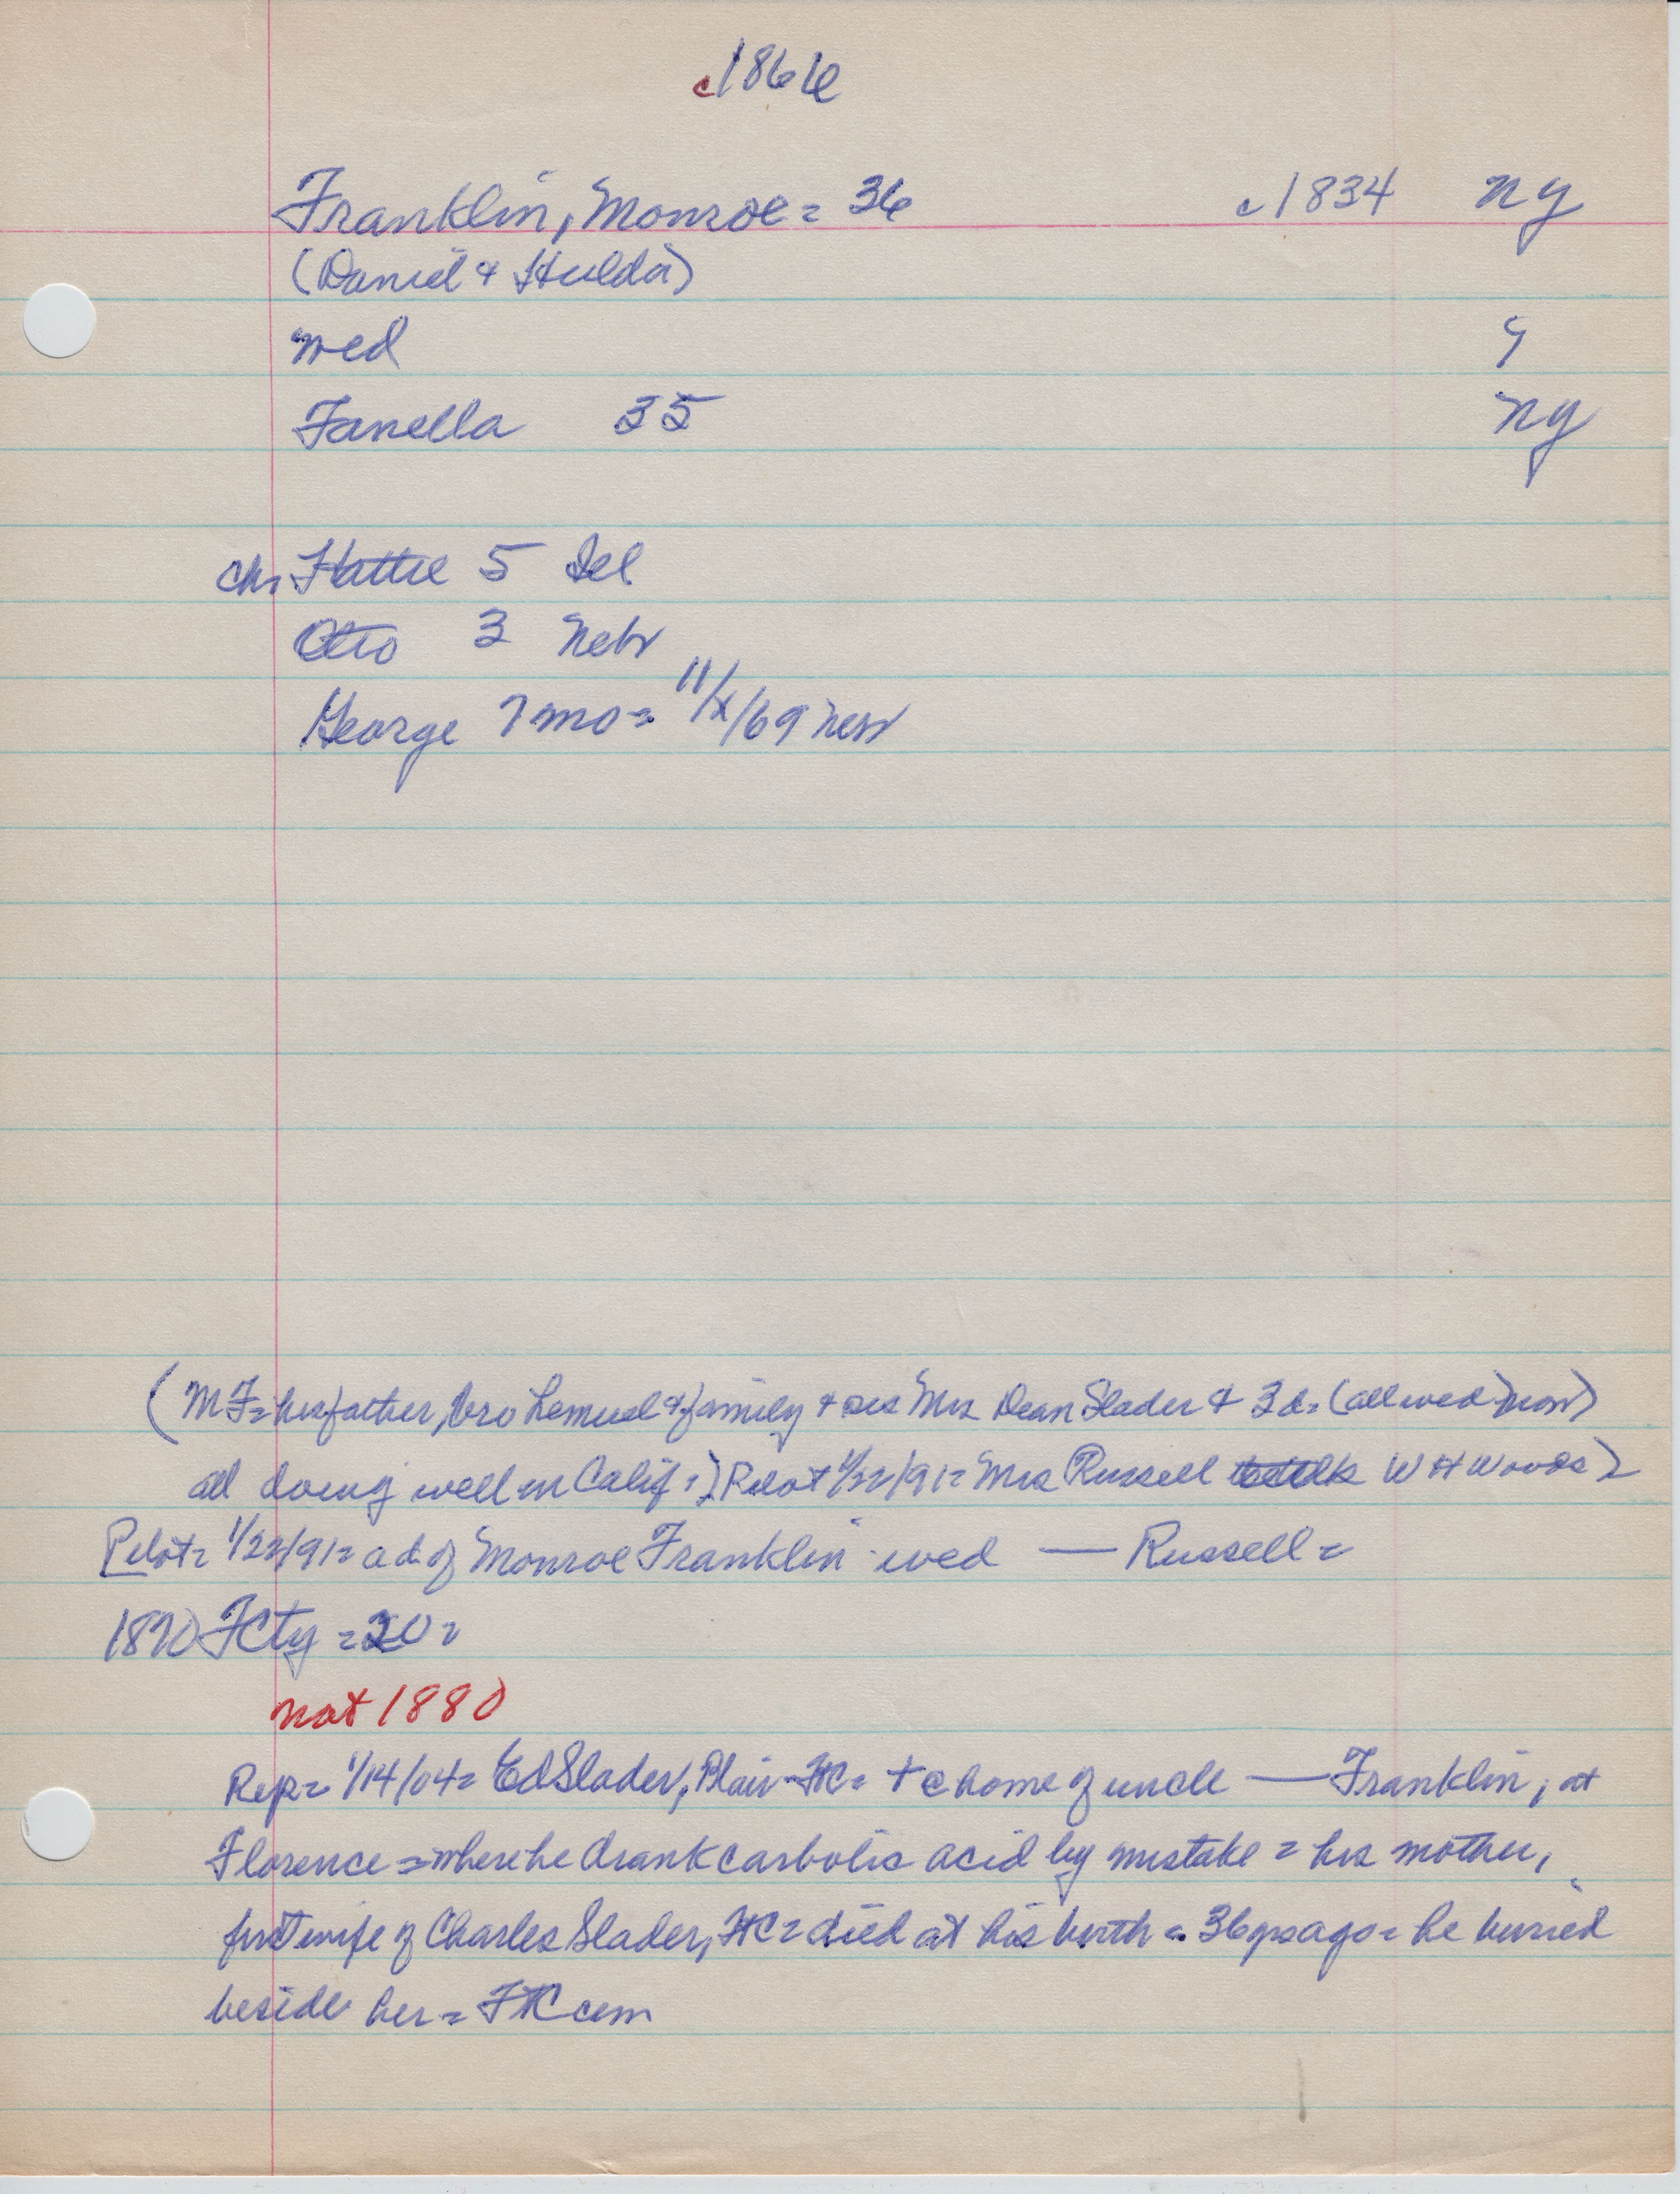 c1866
Franklin, Monroe = 36 c1834 NY
(Daniel & Hulda)
wed
Fanella 35 NY
ch, Hattie 5
Otto 3 Nebr
George 7 mo = 11/x/69 Nebr
(MF = his father, bro Lemuel & family & sis Mrs Dean Slader & 3 d = (all wed now)
all doing well in Calif =) Pilot 1/22/91 = Mrs Russell W H Woods)
Pilot = 1/22/91 = a d of Monroe Franklin wed — Russell =
1870 FCty = 20 =
not 1880
Rep = 1/14/04 = Ed Slader, Blair = + c home of uncle — Franklin, at
Florence = where he drank carbolic acid by mistake = his mother,
first wife of Charles Slader, FtC = died at his birth = 36 yrs ago = he buried
beside her = FtC cem